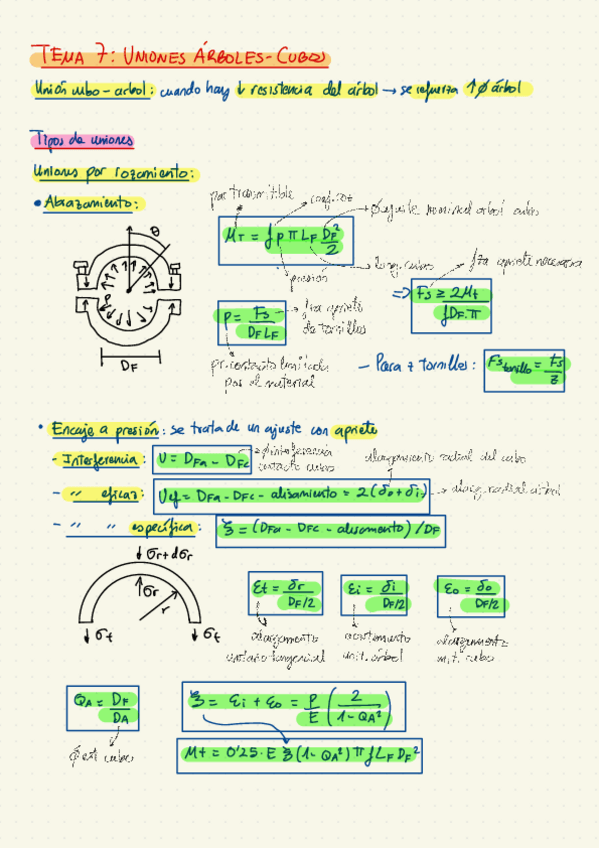 TEMA 7: UNIONES ÁRBOLES-CUBOS
Unión cubo-arbol: cuando hay ↓ resistencia del árbol → se refuerza ↑ Ø árbol
Tipos de uniones
Uniones por rozamiento:
• Abrazamiento:
par transmitible
coef. roz
Ø ajuste nominal arbol cubo
M_T = f p π L_F D_F²/2
presión
long. cubo
fza apriete necesaria
θ
P
D_F
P = F_S / D_F L_F
fza apriete de tornillos
⇒ F_S ≥ 2M_t / f D_F · π
pr. contacto limitada por el material
– Para z tornillos: F_S tornillo = F_S / z
• Encaje a presión: se trata de un ajuste con apriete
– Interferencia: U = D_Fa – D_Fc
Ø interferencia contacto cubo
alargamiento radial del cubo
– " eficaz: U_ef = D_Fa – D_Fc – alisamiento = 2(δo + δi)
radial árbol
– " " específica: ξ = (D_Fa – D_Fc – alisamiento) / D_F
σr + dσr
σr
r
σt
σt
εt = δr / D_F/2
εi = δi / D_F/2
εo = δo / D_F/2
alargamiento unitario tangencial
acortamiento unit. árbol
alargamiento unit. cubo
Q_A = D_F / D_A
Ø ext cubo
ξ = εi + εo = P/E (2 / 1 – Q_A²)
M_t = 0'25 · E ξ (1 – Q_A²) π f L_F D_F²